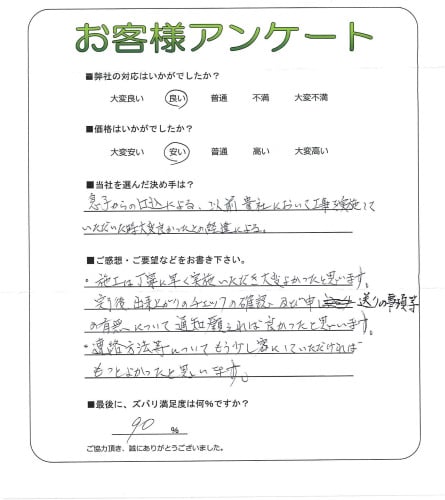 お客様アンケート
■弊社の対応はいかがでしたか？
大変良い 良い 普通 不満 大変不満
■価格はいかがでしたか？
大変安い 安い 普通 高い 大変高い
■当社を選んだ決め手は？
息子からの による、以前貴社において工事を実施して
いただいた時大変良かったとの経違による。
■ご感想・ご要望などをお書き下さい。
・施工は丁寧に早く実施いただき大変よかったと思います。
完了後 出来上がりのチェックの確認、及び申し送りの事項等
の有無について通知願えれば良かったと思います。
・連絡方法等についてもう少し密にしていただければ
もっとよかったと思います。
■最後に、ズバリ満足度は何％ですか？
90 ％
ご協力頂き、誠にありがとうございました。